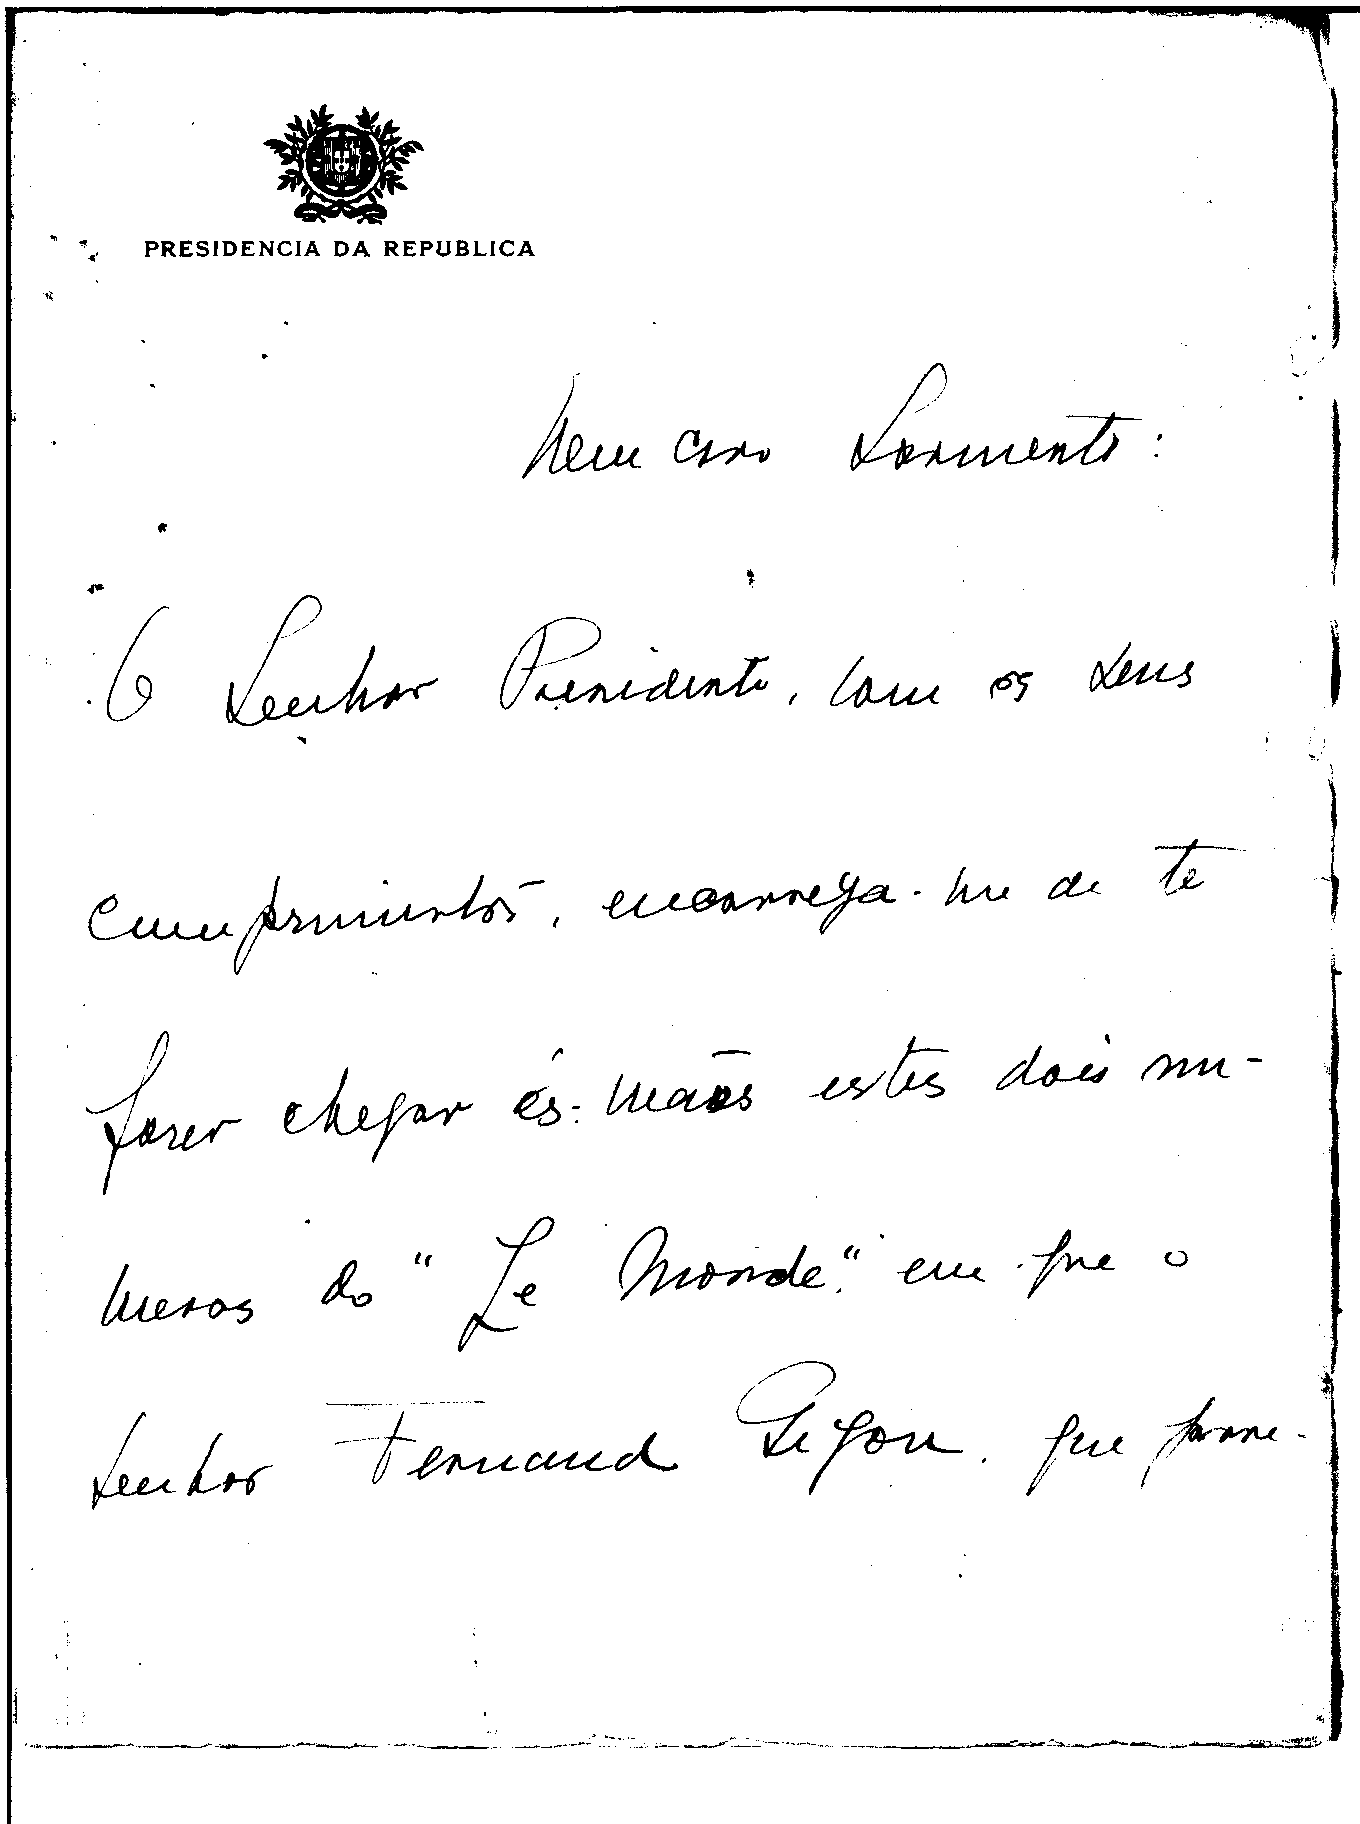 PRESIDENCIA DA REPUBLICA
Meu caro Sarmento:
O Senhor Presidente, com os seus
cumprimentos, encarrega-me de te
fazer chegar às mãos estes dois nu-
meros do "Le Monde" em que o
Senhor Fernand Gigon, que